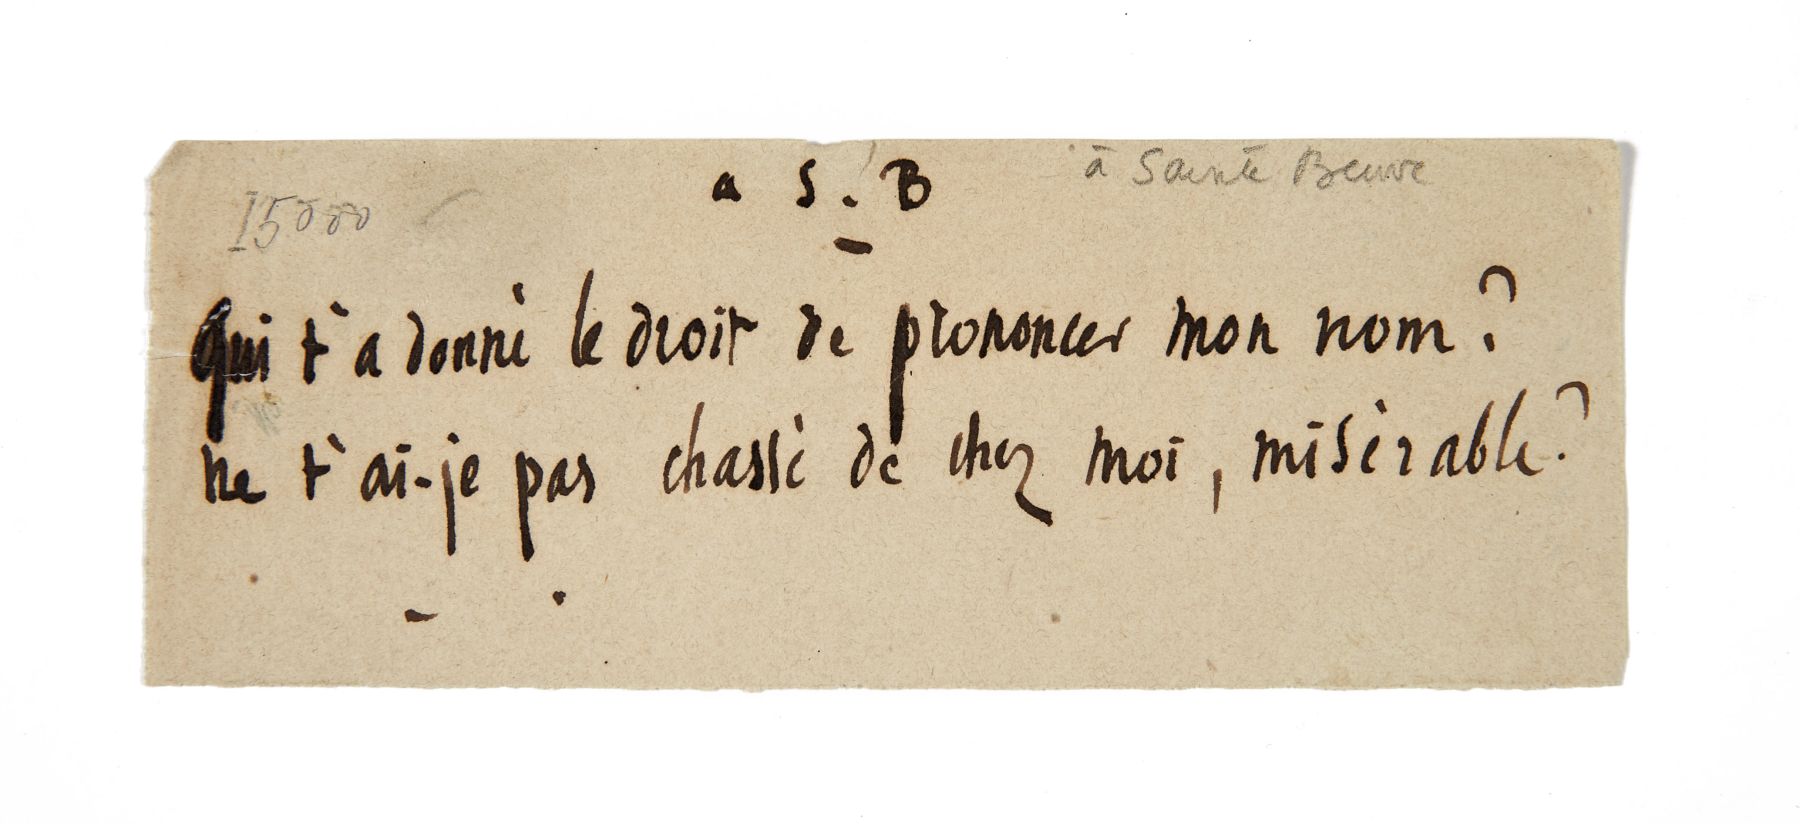 a S. B
à Sainte Beuve
15000
Qui t'a donné le droit de prononcer mon nom?
ne t'ai-je pas chassé de chez moi, misérable?